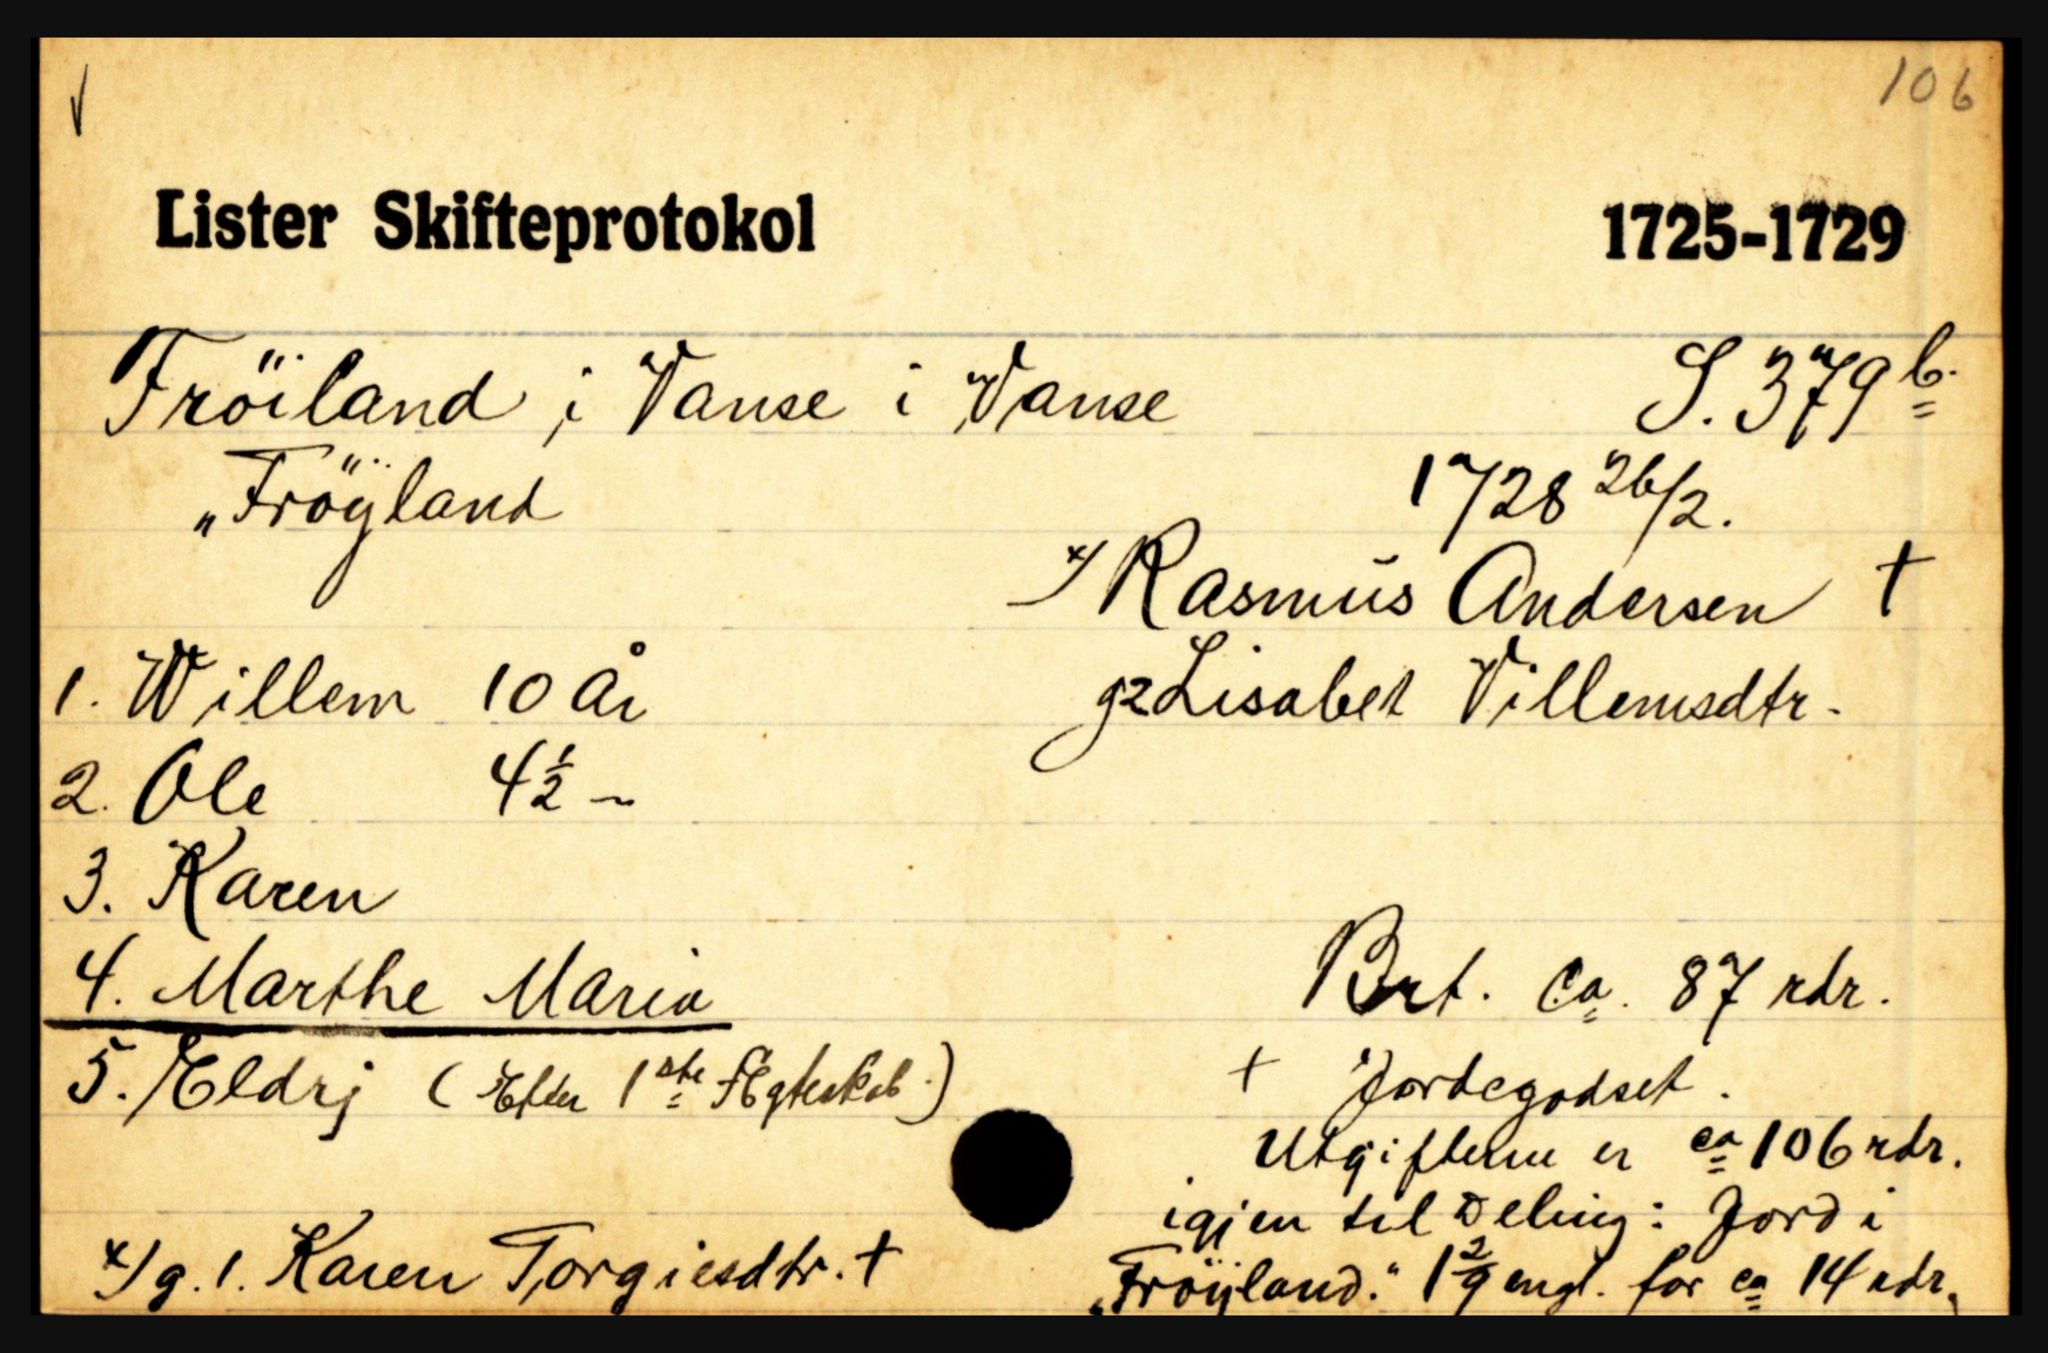 √ 106
Lister Skifteprotokol 1725-1729
Fröiland i Vanse i Vanse S. 379 b.
"Fröÿland" 1728 26/2.
x/ Rasmus Andersen †
1. Willem 10 År g2 Lisabet Villemsdtr.
2. Ole 4½ ~
3. Karen
4. Marthe Maria Brt. ca. 87 rdr.
5. Eldrj (Efter 1ste Ægteskab.) + Jordegodset.
Utgifterne er ca 106 rdr.
igjen til Deling: Jord i
x/ g. 1. Karen Torgiesdtr. † "Fröÿland." 1 2/9 engl. for ca 14 rdr.